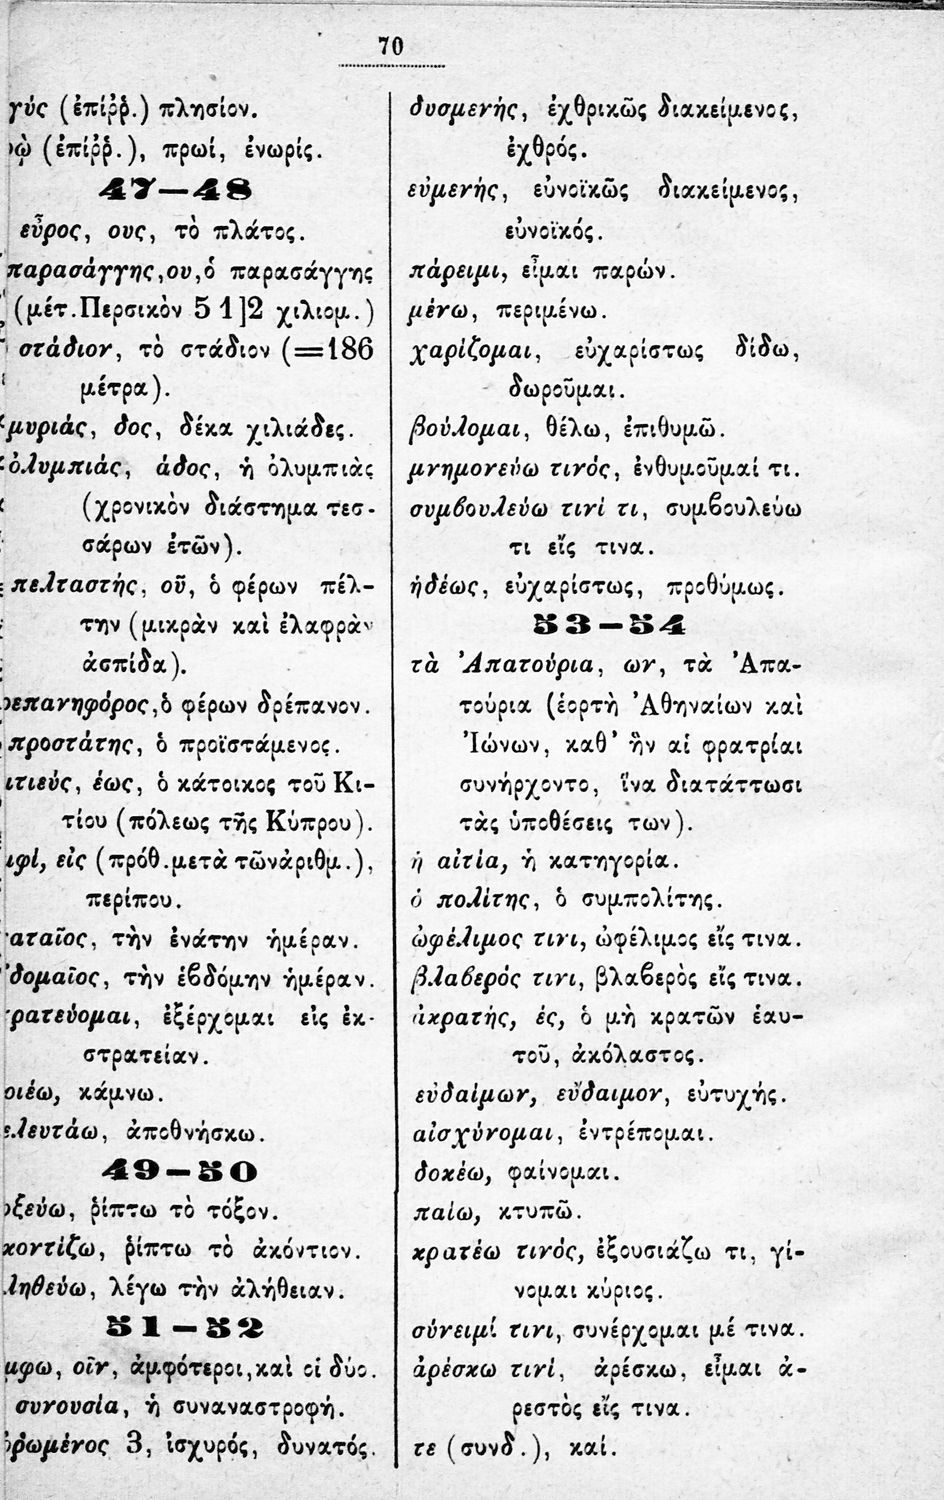 70
(ἐπίῤῥ.) πλησίον.
(ἐπίῤῥ.), πρωί, ἐνωρίς.
47—48
εὖρος, ους, τὸ πλάτος.
παρασάγγης,ου,ὁ παρασάγγης
(μέτ.Περσικὸν 5 1]2 χιλιομ.)
στάδιον, τὸ στάδιον (=186
μέτρα).
μυριάς, δος, δέκα χιλιάδες.
ὀλυμπιάς, άδος, ἡ ὀλυμπιὰς
(χρονικὸν διάστημα τεσ-
σάρων ἐτῶν).
πελταστής, οῦ, ὁ φέρων πέλ-
την (μικρὰν καὶ ἐλαφρὰν
ἀσπίδα).
ρεπανηφόρος,ὁ φέρων δρέπανον.
προστάτης, ὁ προϊστάμενος.
ιτιεύς, έως, ὁ κάτοικος τοῦ Κι-
τίου (πόλεως τῆς Κύπρου).
μφί, εἰς (πρόθ.μετὰ τῶνἀριθμ.),
περίπου.
αταῖος, τὴν ἐνάτην ἡμέραν.
δομαῖος, τὴν ἑβδόμην ἡμέραν.
ρατεύομαι, ἐξέρχομαι εἰς ἐκ-
στρατείαν.
οιέω, κάμνω.
ελευτάω, ἀποθνήσκω.
49—50
οξεύω, ῥίπτω τὸ τόξον.
κοντίζω, ῥίπτω τὸ ἀκόντιον.
ληθεύω, λέγω τὴν ἀλήθειαν.
51—52
μφω, οῖν, ἀμφότεροι,καὶ οἱ δύο.
συνουσία, ἡ συναναστροφή.
ρωμένος 3, ἰσχυρός, δυνατός.
δυσμενής, ἐχθρικῶς διακείμενος,
ἐχθρός.
εὐμενής, εὐνοϊκῶς διακείμενος,
εὐνοϊκός.
πάρειμι, εἶμαι παρών.
μένω, περιμένω.
χαρίζομαι, εὐχαρίστως δίδω,
δωροῦμαι.
βούλομαι, θέλω, ἐπιθυμῶ.
μνημονεύω τινός, ἐνθυμοῦμαί τι.
συμβουλεύω τινί τι, συμβουλεύω
τι εἴς τινα.
ἡδέως, εὐχαρίστως, προθύμως.
53—54
τὰ Ἀπατούρια, ων, τὰ Ἀπα-
τούρια (ἑορτὴ Ἀθηναίων καὶ
Ἰώνων, καθ' ἣν αἱ φρατρίαι
συνήρχοντο, ἵνα διατάττωσι
τὰς ὑποθέσεις των).
ἡ αἰτία, ἡ κατηγορία.
ὁ πολίτης, ὁ συμπολίτης.
ὠφέλιμος τινι, ὠφέλιμος εἴς τινα.
βλαβερός τινι, βλαβερὸς εἴς τινα.
ἀκρατής, ές, ὁ μὴ κρατῶν ἑαυ-
τοῦ, ἀκόλαστος.
εὐδαίμων, εὔδαιμον, εὐτυχής.
αἰσχύνομαι, ἐντρέπομαι.
δοκέω, φαίνομαι.
παίω, κτυπῶ.
κρατέω τινός, ἐξουσιάζω τι, γί-
νομαι κύριος.
σύνειμί τινι, συνέρχομαι μέ τινα.
ἀρέσκω τινί, ἀρέσκω, εἶμαι ἀ-
ρεστὸς εἴς τινα.
τε (συνδ.), καί.